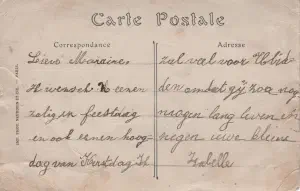 Carte Postale
Correspondance
Lieve Maraine
Ik wensch U eenen
zalig en feestdag
en ook eenen hoog-
dag van Kerstdag Ik
Adresse
zal veel voor U bid
den omdat gij zoo nog
mogen lang leven in
zegen uwe kleine
Isabelle